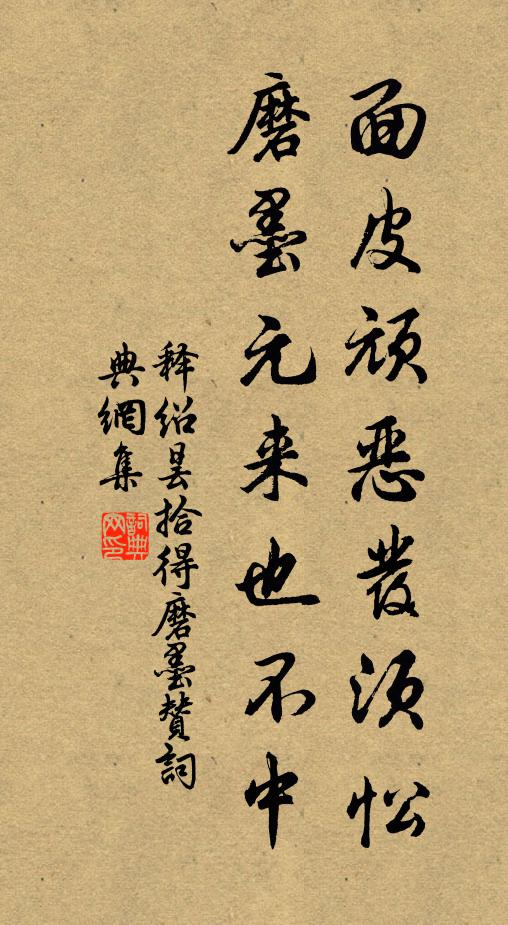 面皮顽恶发须忪
磨墨元来也不中
释绍昙拾得磨墨赞词
典網集
詞典网印